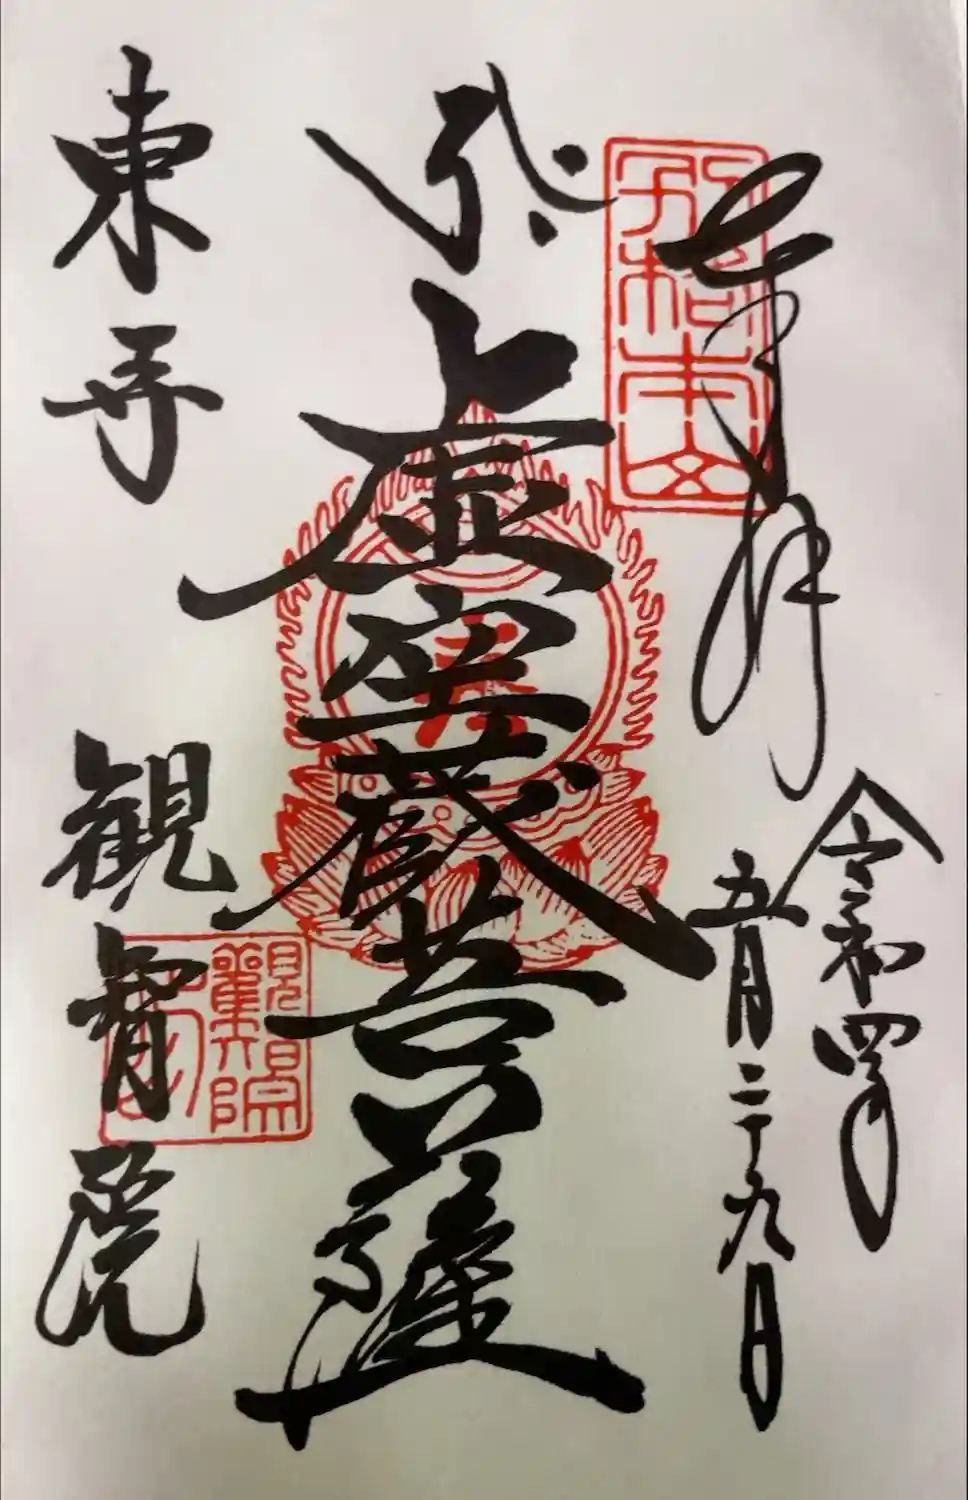 奉拝
令和四年
五月二十九日
別格本山
虚空蔵菩薩
東寺
観智院